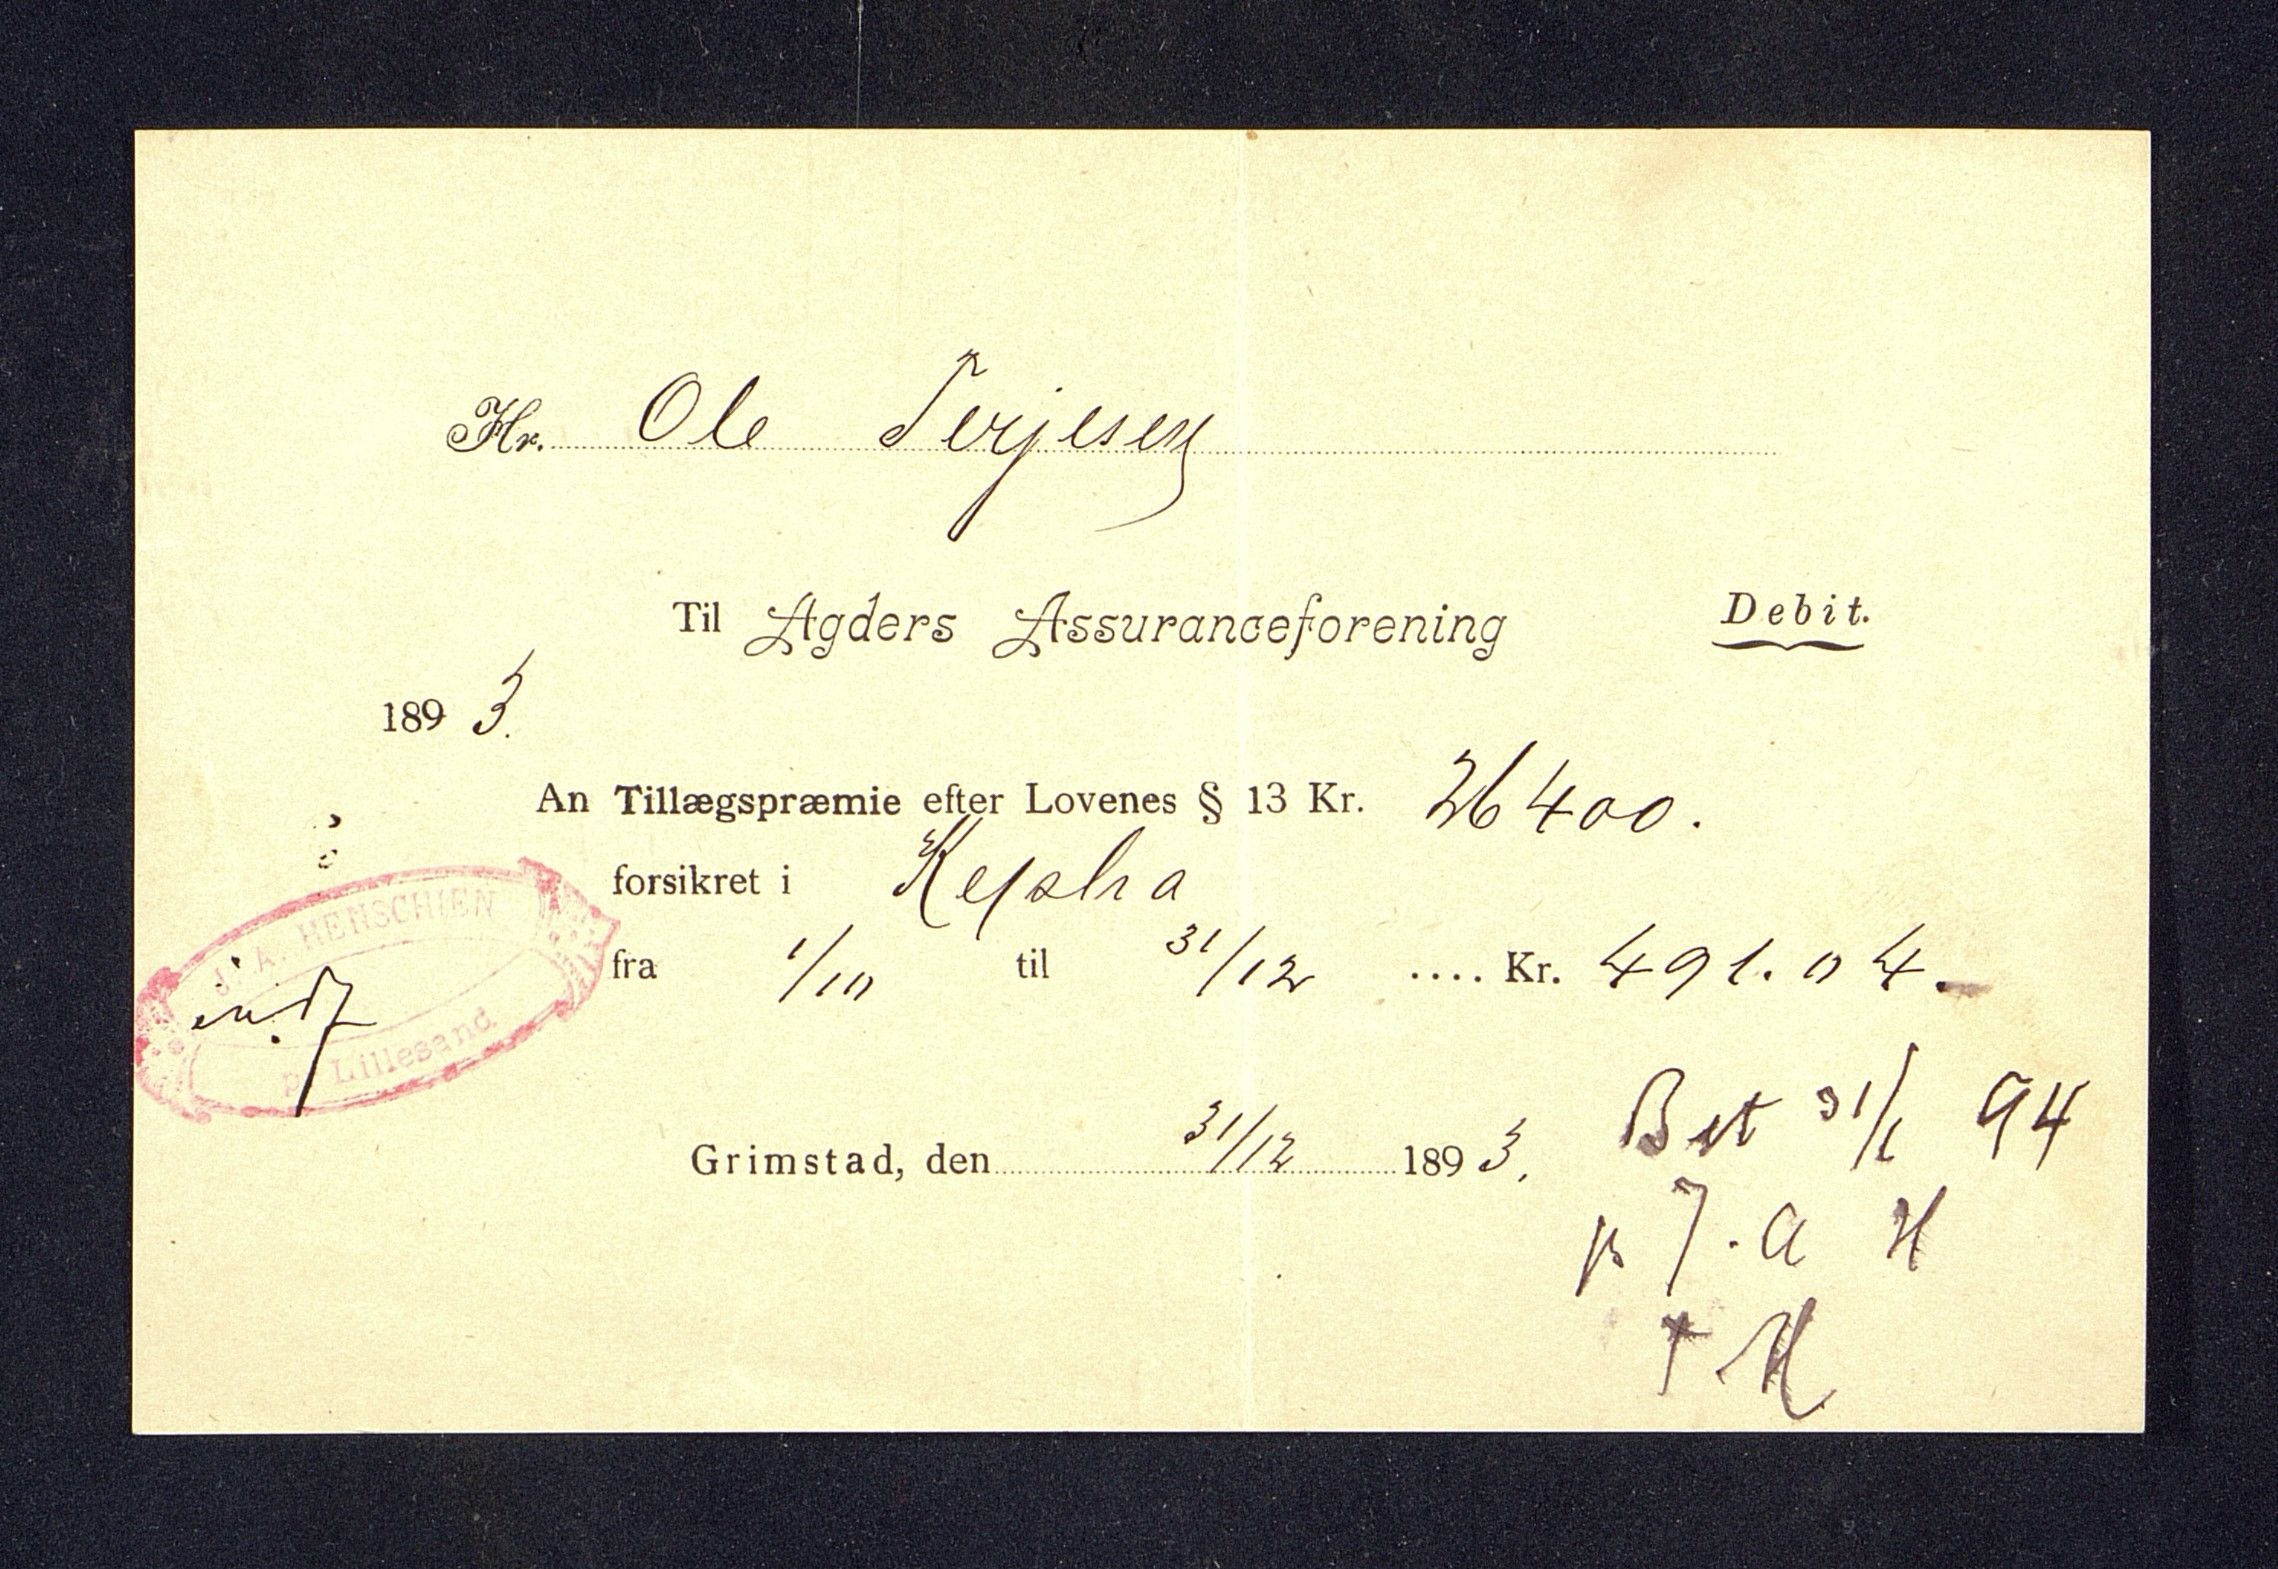 Hr. Ole Terjesen
Til Agders Assuranceforening Debit.
1893.
An Tillægspræmie efter Lovenes § 13 Kr. 26400.
forsikret i
fra 1/10 til 31/12 .... Kr. 491.04.
J. A. HENSCHIEN
p. Lillesand
Grimstad, den 31/12 1893.
Bet 31/1 94
p J. A H